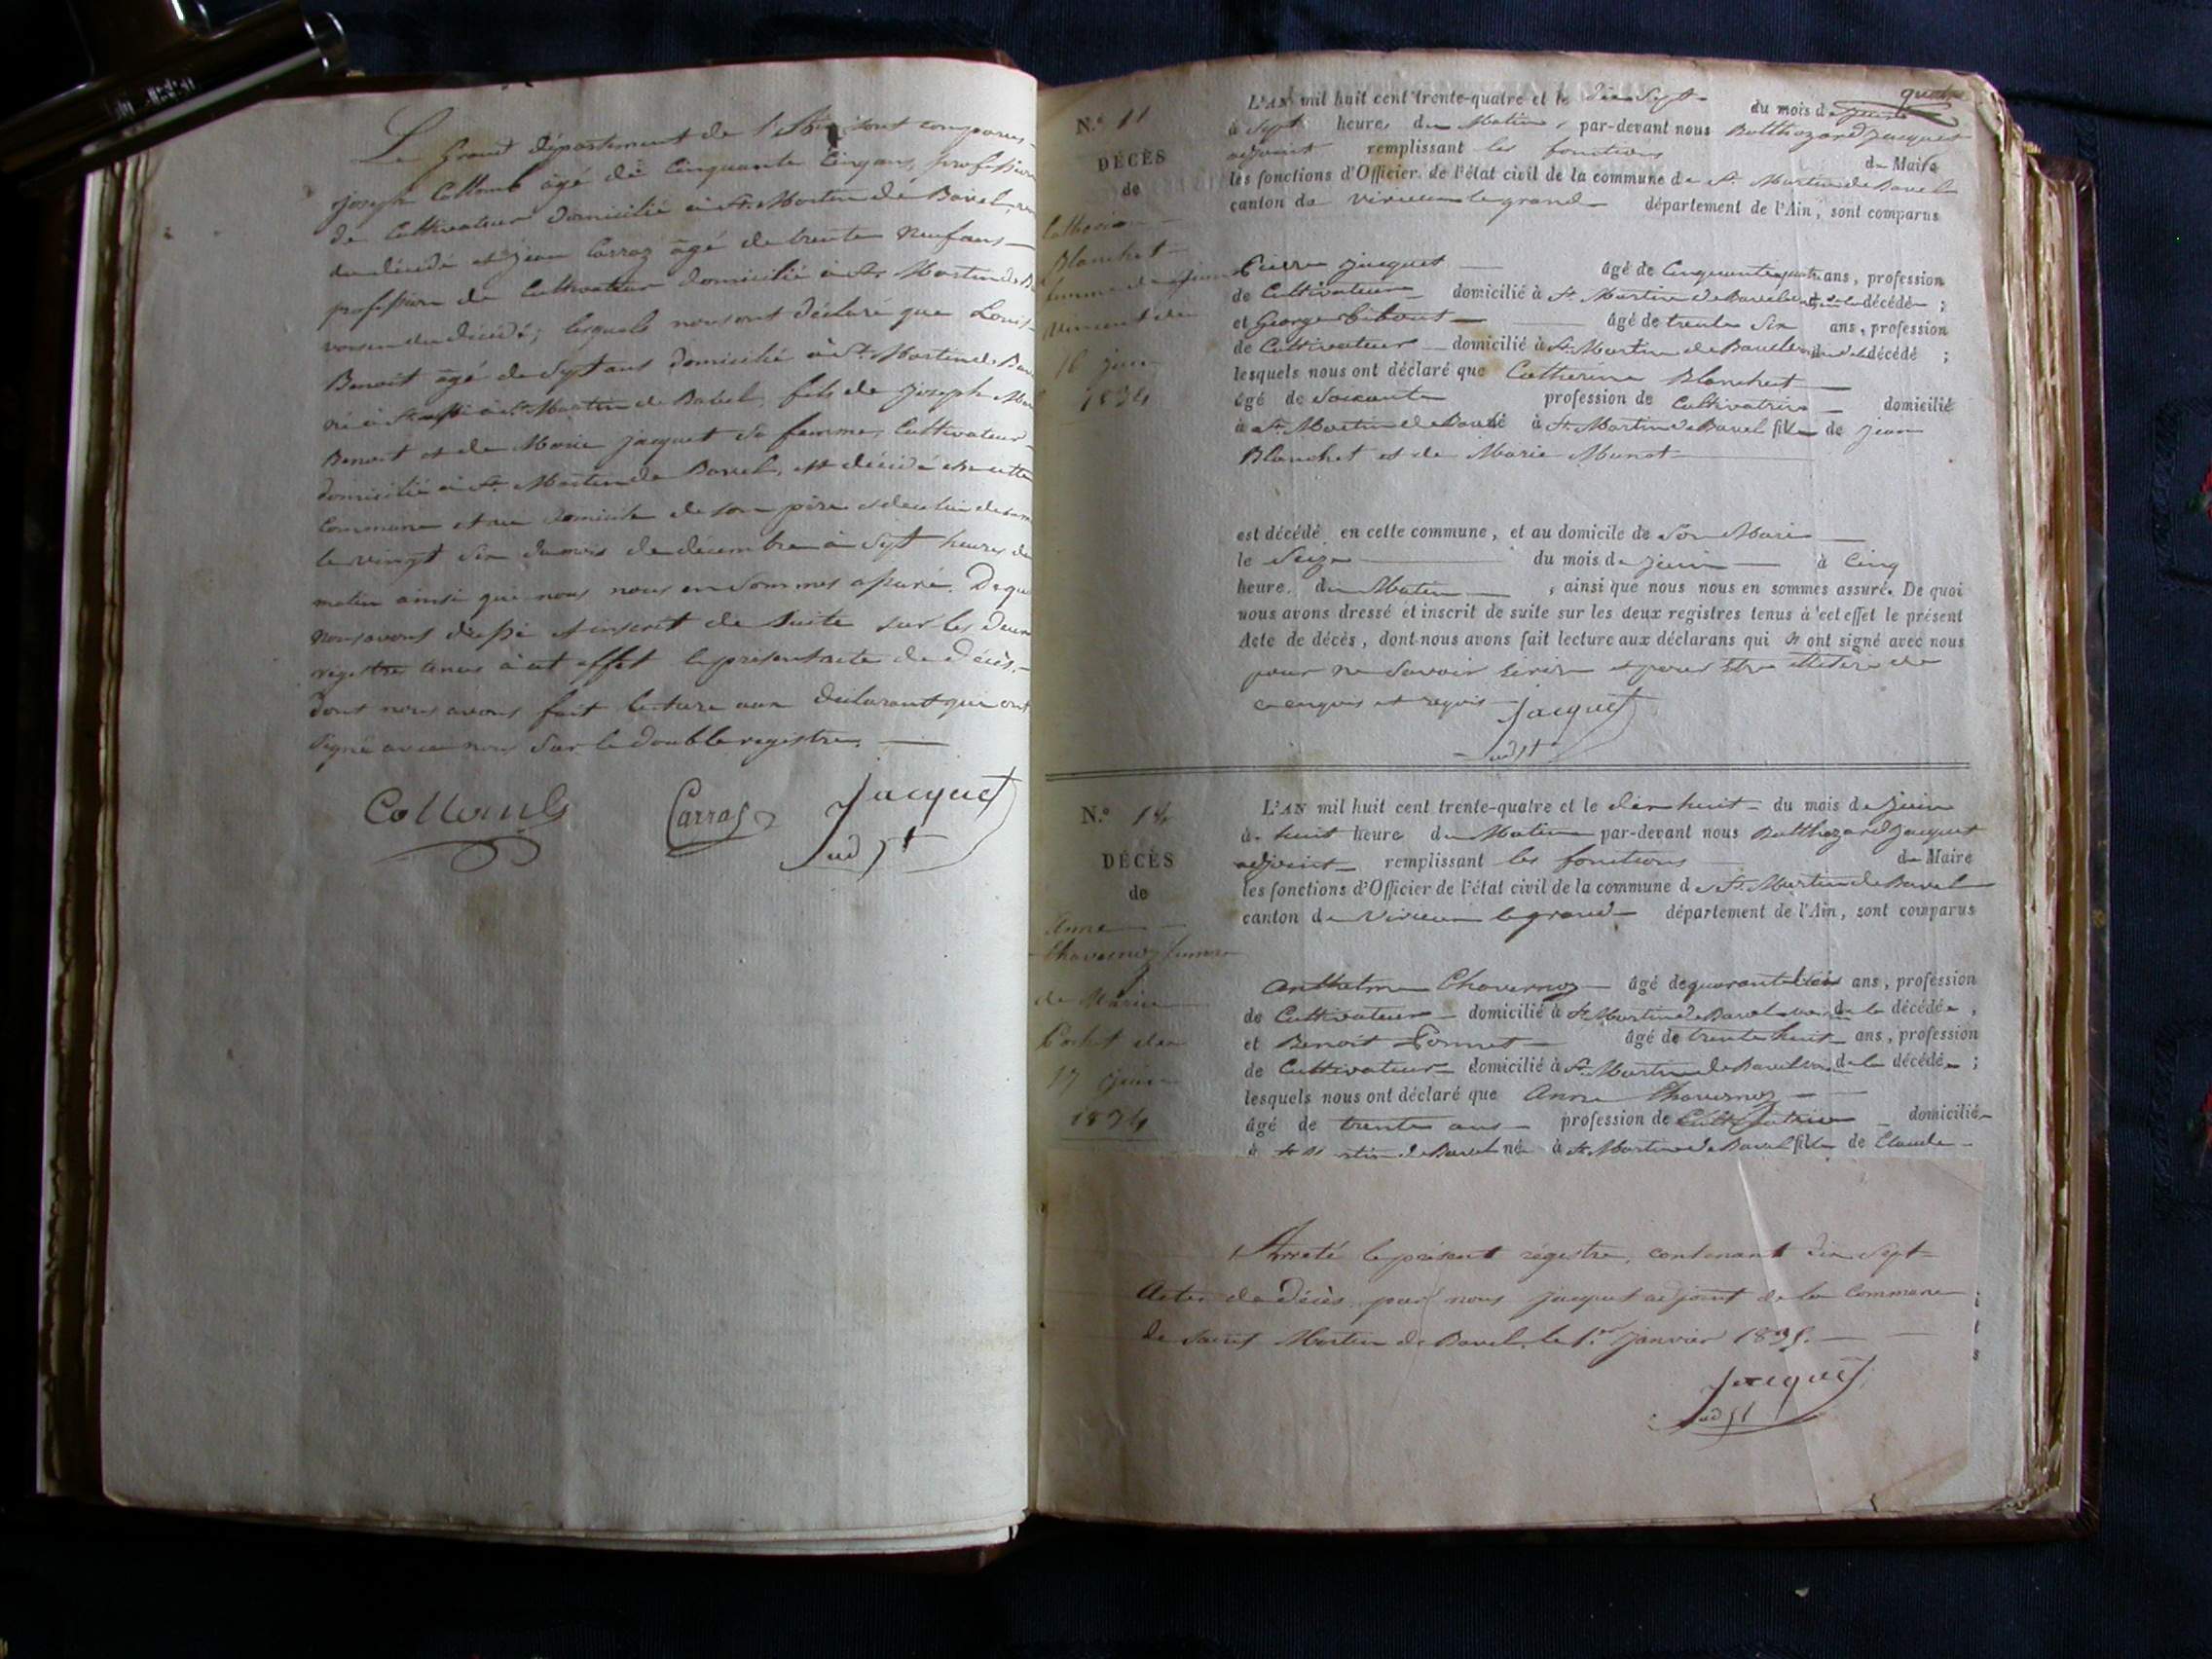 Le Grand département de l'Ain sont comparus
joseph Collomb âgé de Cinquante Cinq ans, profession
de Cultivateur domicilié à St. Martin de Bavel,
du décédé et jean Carraz âgé de trente neuf ans
profession de Cultivateur domicilié à St. Martin de
voisin du décédé; lesquels nous ont déclaré que Louis
Benoit âgé de Sept ans domicilié à St. Martin de
né à St. Martin de Bavel, fils de joseph
Benoit et de Marie jacquet sa femme, Cultivateur
domicilié à St. Martin de Bavel, est décédé en cette
Commune et au domicile de son père
le vingt six du mois de décembre à Sept heures du
matin ainsi que nous nous en sommes assuré. De quoi
nous avons dressé et inscrit de suite sur les deux
registre tenus à cet effet le présent acte de décès,
dont nous avons fait lecture aux déclarant qui ont
signé avec nous sur le double registre.
Collomb Carraz Jacquet
adjt
quatre
N.° 11
DÉCÈS
de
Catherine
Blanchet
femme de
Vincent du
16 juin
1834
L'AN mil huit cent trente-quatre et le dix Sept du mois de juin
à Sept heures du Matin, par-devant nous Balthazard Jacquet
adjoint remplissant les fonctions de Maire
les fonctions d'Officier de l'état civil de la commune de St. Martin de Bavel
canton de Virieu le grand département de l'Ain, sont comparus
Pierre Jacquet âgé de Cinquante quatre ans, profession
de Cultivateur domicilié à St. Martin de Bavel décédé ;
et George âgé de trente Six ans, profession
de Cultivateur domicilié à St. Martin de Bavel décédé ;
lesquels nous ont déclaré que Catherine Blanchet
âgé de Soixante profession de Cultivatrice domicilié
à St. Martin de Bavel né à St. Martin de Bavel fille de jean
Blanchet et de Marie
est décédé en cette commune, et au domicile de Son Mari
le Seize du mois de juin à Cinq
heure du Matin, ainsi que nous nous en sommes assuré. De quoi
nous avons dressé et inscrit de suite sur les deux registres tenus à cet effet le présent
Acte de décès, dont nous avons fait lecture aux déclarans qui n'ont signé avec nous
pour ne Savoir écrire et pour être illitéré de
ce enquis et requis
Jacquet
adjt
N.° 12
DÉCÈS
de
Anne
Chavernoz femme
de Marin
Cochet du
17 juin
1834
L'AN mil huit cent trente-quatre et le dix huit du mois de juin
à huit heure du Matin par-devant nous Balthazard Jacquet
adjoint remplissant les fonctions de Maire
les fonctions d'Officier de l'état civil de la commune de St. Martin de Bavel
canton de Virieu le grand département de l'Ain, sont comparus
Anthelme Chavernoz âgé de quarante ans, profession
de Cultivateur domicilié à St. Martin de Bavel voisin de la décédée,
et Benoit âgé de trente huit ans, profession
de Cultivateur domicilié à St. Martin de Bavel voisin de la décédée ;
lesquels nous ont déclaré que Anne Chavernoz
âgé de trente ans profession de Cultivatrice domicilié
à St Martin de Bavel né à St Martin de Bavel fille de Claude
Arreté le présent régistre, contenant dix Sept
Actes de décès par nous jacquet adjoint de la Commune
de Saint Martin de Bavel, le 1.er janvier 1835.
Jacquet
adjt